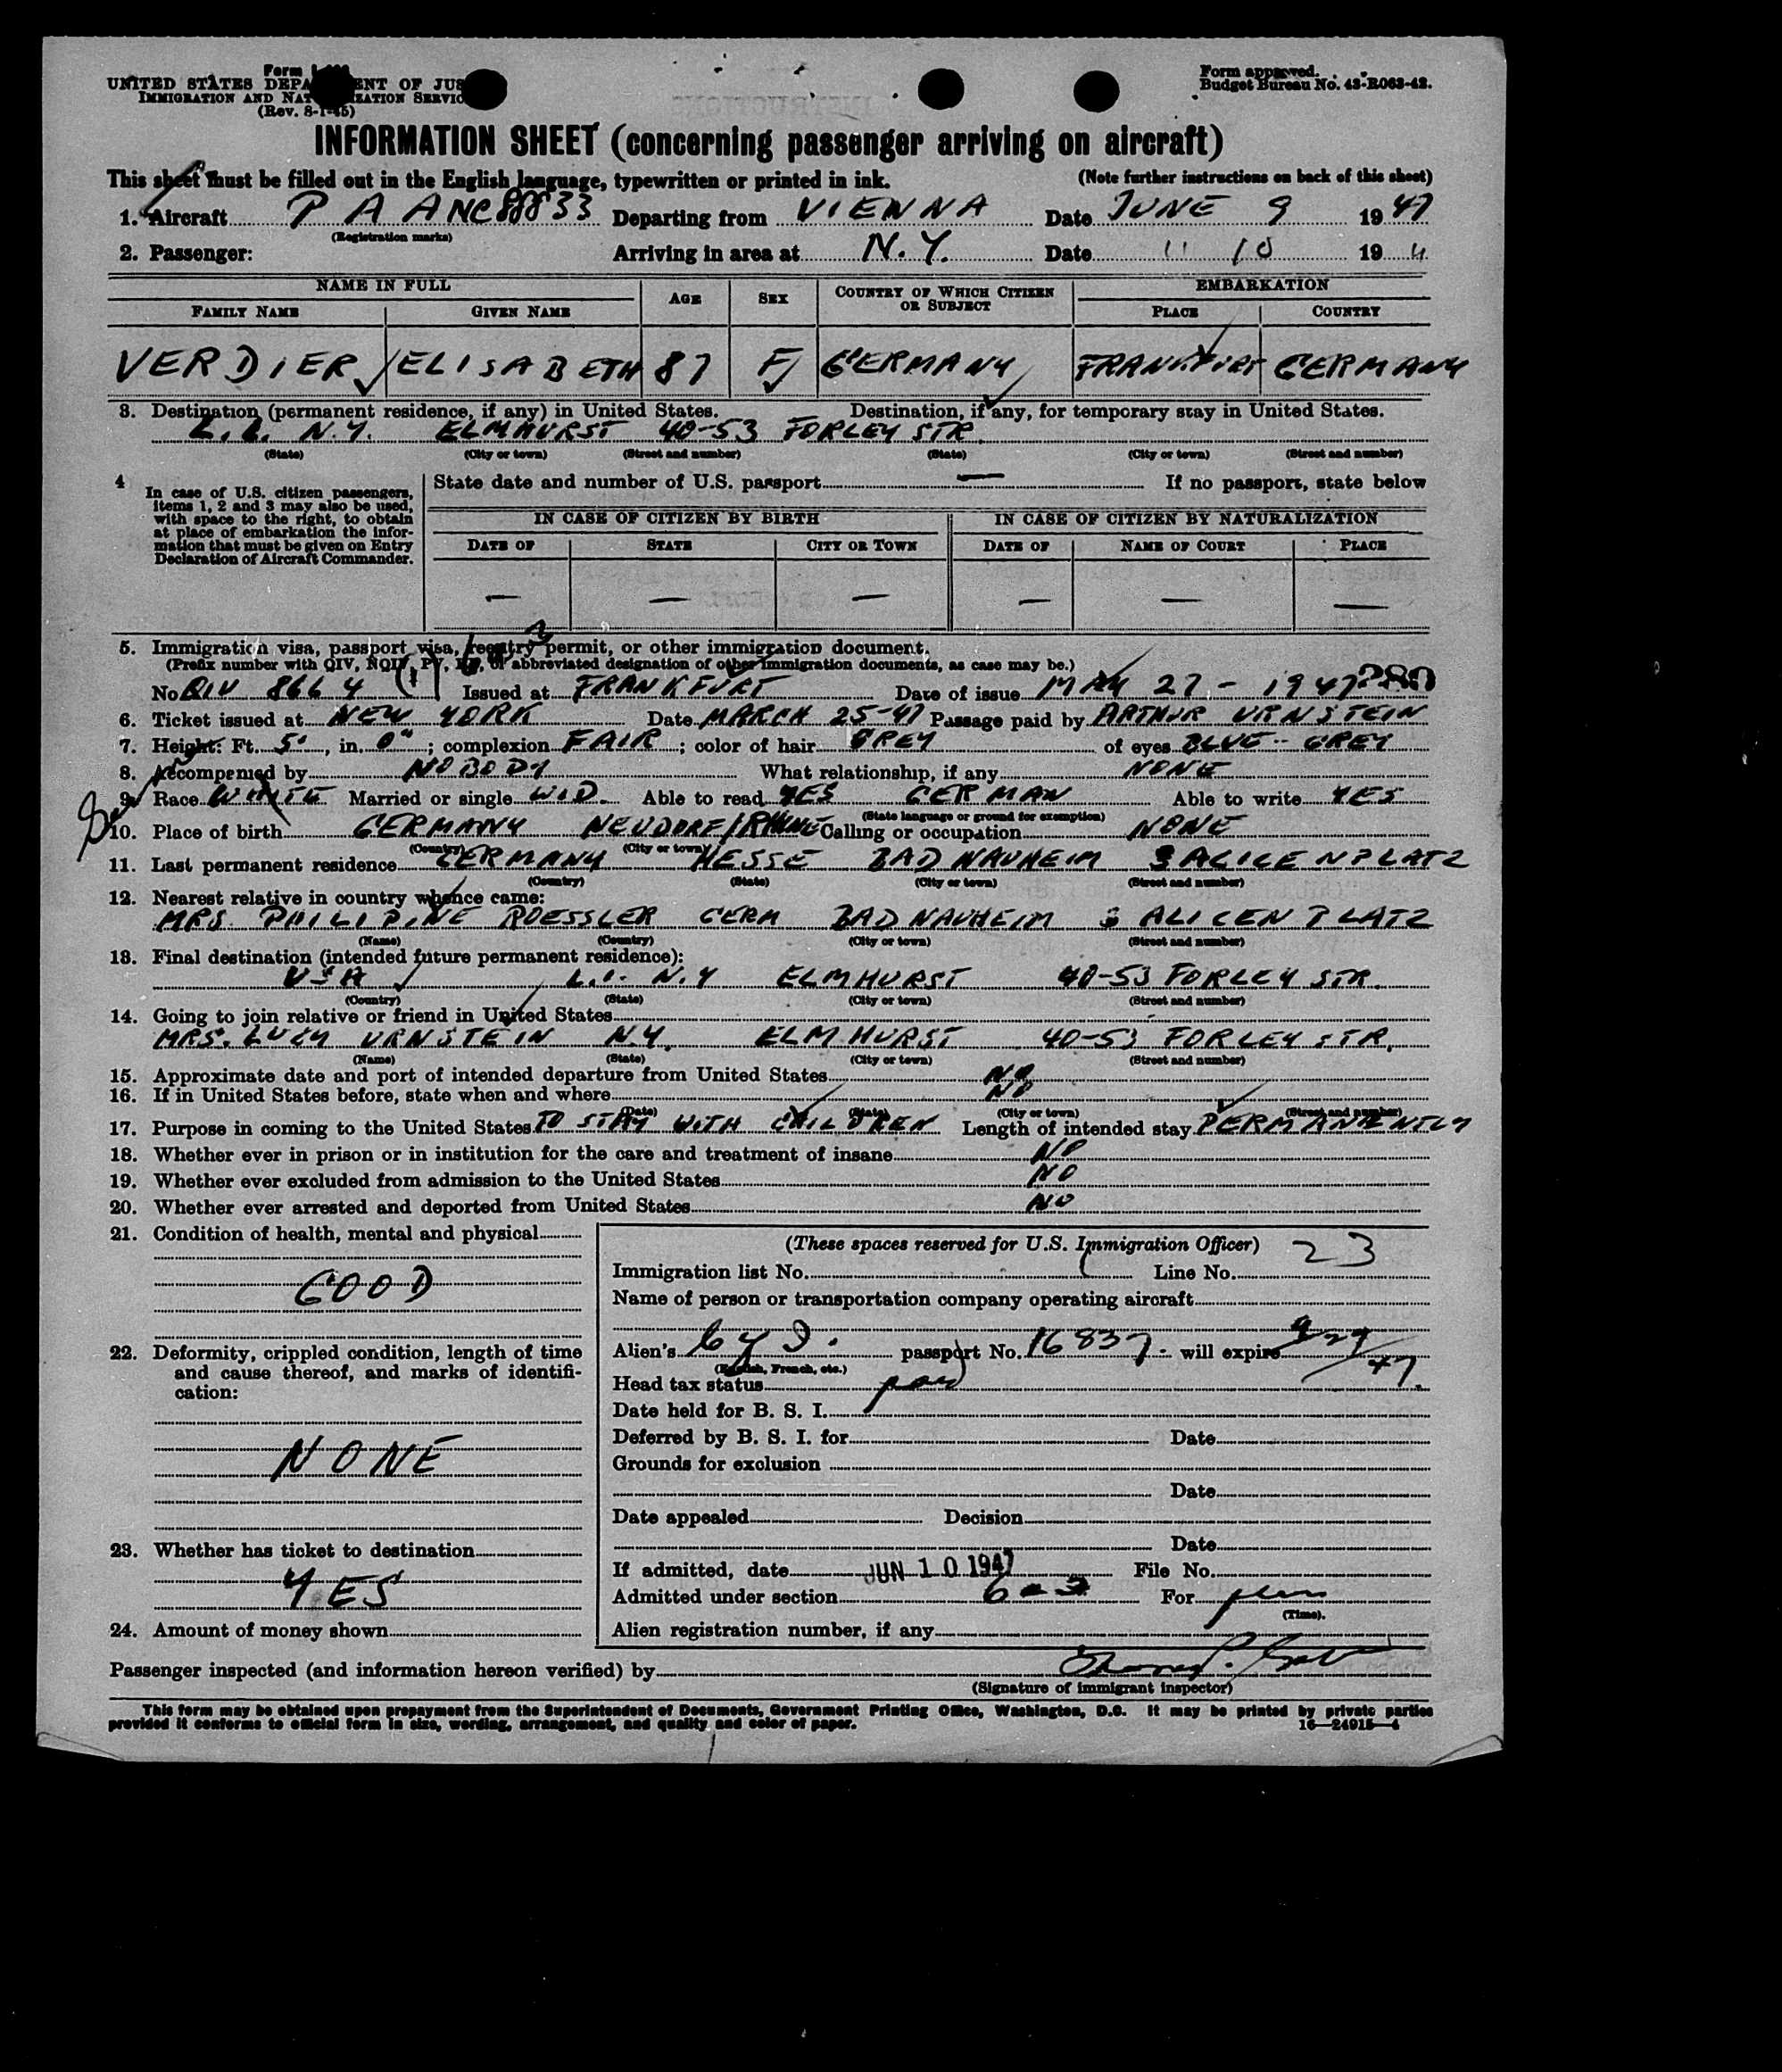 Form
UNITED STATES DEPARTMENT OF JUS
IMMIGRATION AND NATURALIZATION SERVIC
(Rev. 8-1-45)
Form approved.
Budget Bureau No. 43-R063-42.
INFORMATION SHEET (concerning passenger arriving on aircraft)
This sheet must be filled out in the English language, typewritten or printed in ink. (Note further instructions on back of this sheet)
1. Aircraft P A A NC88833 Departing from VIENNA Date JUNE 9 1947
(Registration marks)
2. Passenger: Arriving in area at N.Y. Date 11 10 19 11
NAME IN FULL AGE SEX COUNTRY OF WHICH CITIZEN OR SUBJECT EMBARKATION
FAMILY NAME GIVEN NAME PLACE COUNTRY
VERDIER ELISABETH 87 F GERMANY FRANKFURT GERMANY
3. Destination (permanent residence, if any) in United States. Destination, if any, for temporary stay in United States.
L.I. N.Y. ELMHURST 40-53 FORLEY STR.
(State) (City or town) (Street and number) (State) (City or town) (Street and number)
4 In case of U.S. citizen passengers, items 1, 2 and 3 may also be used, with space to the right, to obtain at place of embarkation the information that must be given on Entry Declaration of Aircraft Commander.
State date and number of U.S. passport — If no passport, state below
IN CASE OF CITIZEN BY BIRTH IN CASE OF CITIZEN BY NATURALIZATION
DATE OF STATE CITY OR TOWN DATE OF NAME OF COURT PLACE
— — — — — —
5. Immigration visa, passport visa, reentry permit, or other immigration document.
(Prefix number with QIV, NQIV, PV, or abbreviated designation of other immigration documents, as case may be.)
No QIV 8664 Issued at FRANKFURT Date of issue MAY 27 - 1947 280
6. Ticket issued at NEW YORK Date MARCH 25-47 Passage paid by ARTHUR URNSTEIN
7. Height: Ft. 5' , in. 0" ; complexion FAIR ; color of hair GREY of eyes BLUE-GREY
8. Accompanied by NOBODY What relationship, if any NONE
9. Race WHITE Married or single WID. Able to read YES GERMAN Able to write YES
(State language or ground for exemption)
10. Place of birth GERMANY NEUDORF/RHINE Calling or occupation NONE
(Country) (City or town)
11. Last permanent residence GERMANY HESSE BAD NAUHEIM 3 ALICENPLATZ
(Country) (State) (City or town) (Street and number)
12. Nearest relative in country whence came:
MRS. PHILIPINE ROESSLER GERM BAD NAUHEIM 3 ALICENPLATZ
(Name) (Country) (City or town) (Street and number)
13. Final destination (intended future permanent residence):
USA L.I. N.Y ELMHURST 40-53 FORLEY STR.
(Country) (State) (City or town) (Street and number)
14. Going to join relative or friend in United States
MRS. LUCY URNSTEIN N.Y. ELMHURST 40-53 FORLEY STR.
(Name) (State) (City or town) (Street and number)
15. Approximate date and port of intended departure from United States NO
16. If in United States before, state when and where NO
(Date) (State) (City or town) (Street and number)
17. Purpose in coming to the United States TO STAY WITH CHILDREN Length of intended stay PERMANENTLY
18. Whether ever in prison or in institution for the care and treatment of insane NO
19. Whether ever excluded from admission to the United States NO
20. Whether ever arrested and deported from United States NO
21. Condition of health, mental and physical
GOOD
22. Deformity, crippled condition, length of time and cause thereof, and marks of identification:
NONE
23. Whether has ticket to destination
YES
24. Amount of money shown
(These spaces reserved for U.S. Immigration Officer) 23
Immigration list No. Line No.
Name of person or transportation company operating aircraft
Alien's passport No. 16837 - will expire 9/29/47.
(English, French, etc.)
Head tax status
Date held for B. S. I.
Deferred by B. S. I. for Date
Grounds for exclusion
Date
Date appealed Decision
Date
If admitted, date JUN 10 1947 File No.
Admitted under section 6-3 For
(Time).
Alien registration number, if any
Passenger inspected (and information hereon verified) by
(Signature of immigrant inspector)
This form may be obtained upon prepayment from the Superintendent of Documents, Government Printing Office, Washington, D.C. It may be printed by private parties
provided it conforms to official form in size, wording, arrangement, and quality and color of paper. 16—24915-4